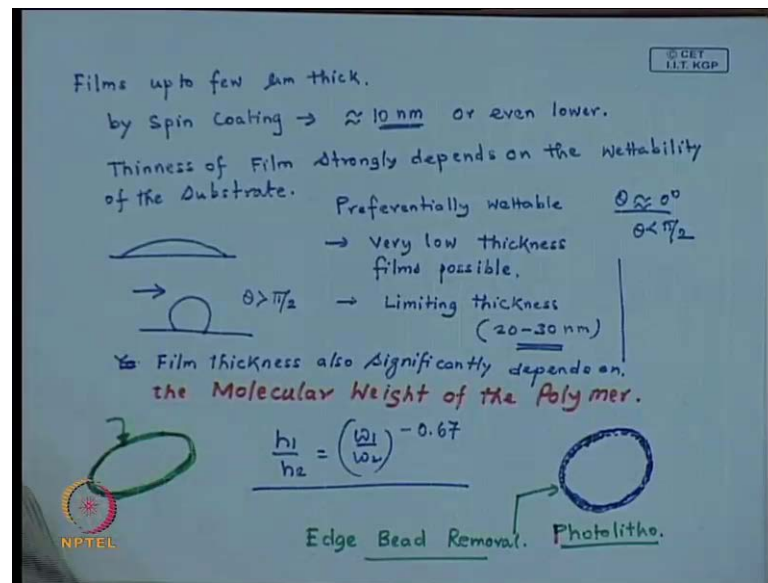 © CET
I.I.T. KGP
Films upto few μm thick.
by Spin Coating → ≈ 10 nm or even lower.
Thinness of Film Strongly depends on the Wettability
of the Substrate.
Preferentially wettable θ ≈ 0°
θ < π/2
→ Very low thickness
films possible.
θ > π/2 → Limiting thickness
(20-30 nm)
Film thickness also Significantly depends on
the Molecular Weight of the Polymer.
h1/h2 = (ω1/ω2)^-0.67
Edge Bead Removal. Photolitho.
NPTEL